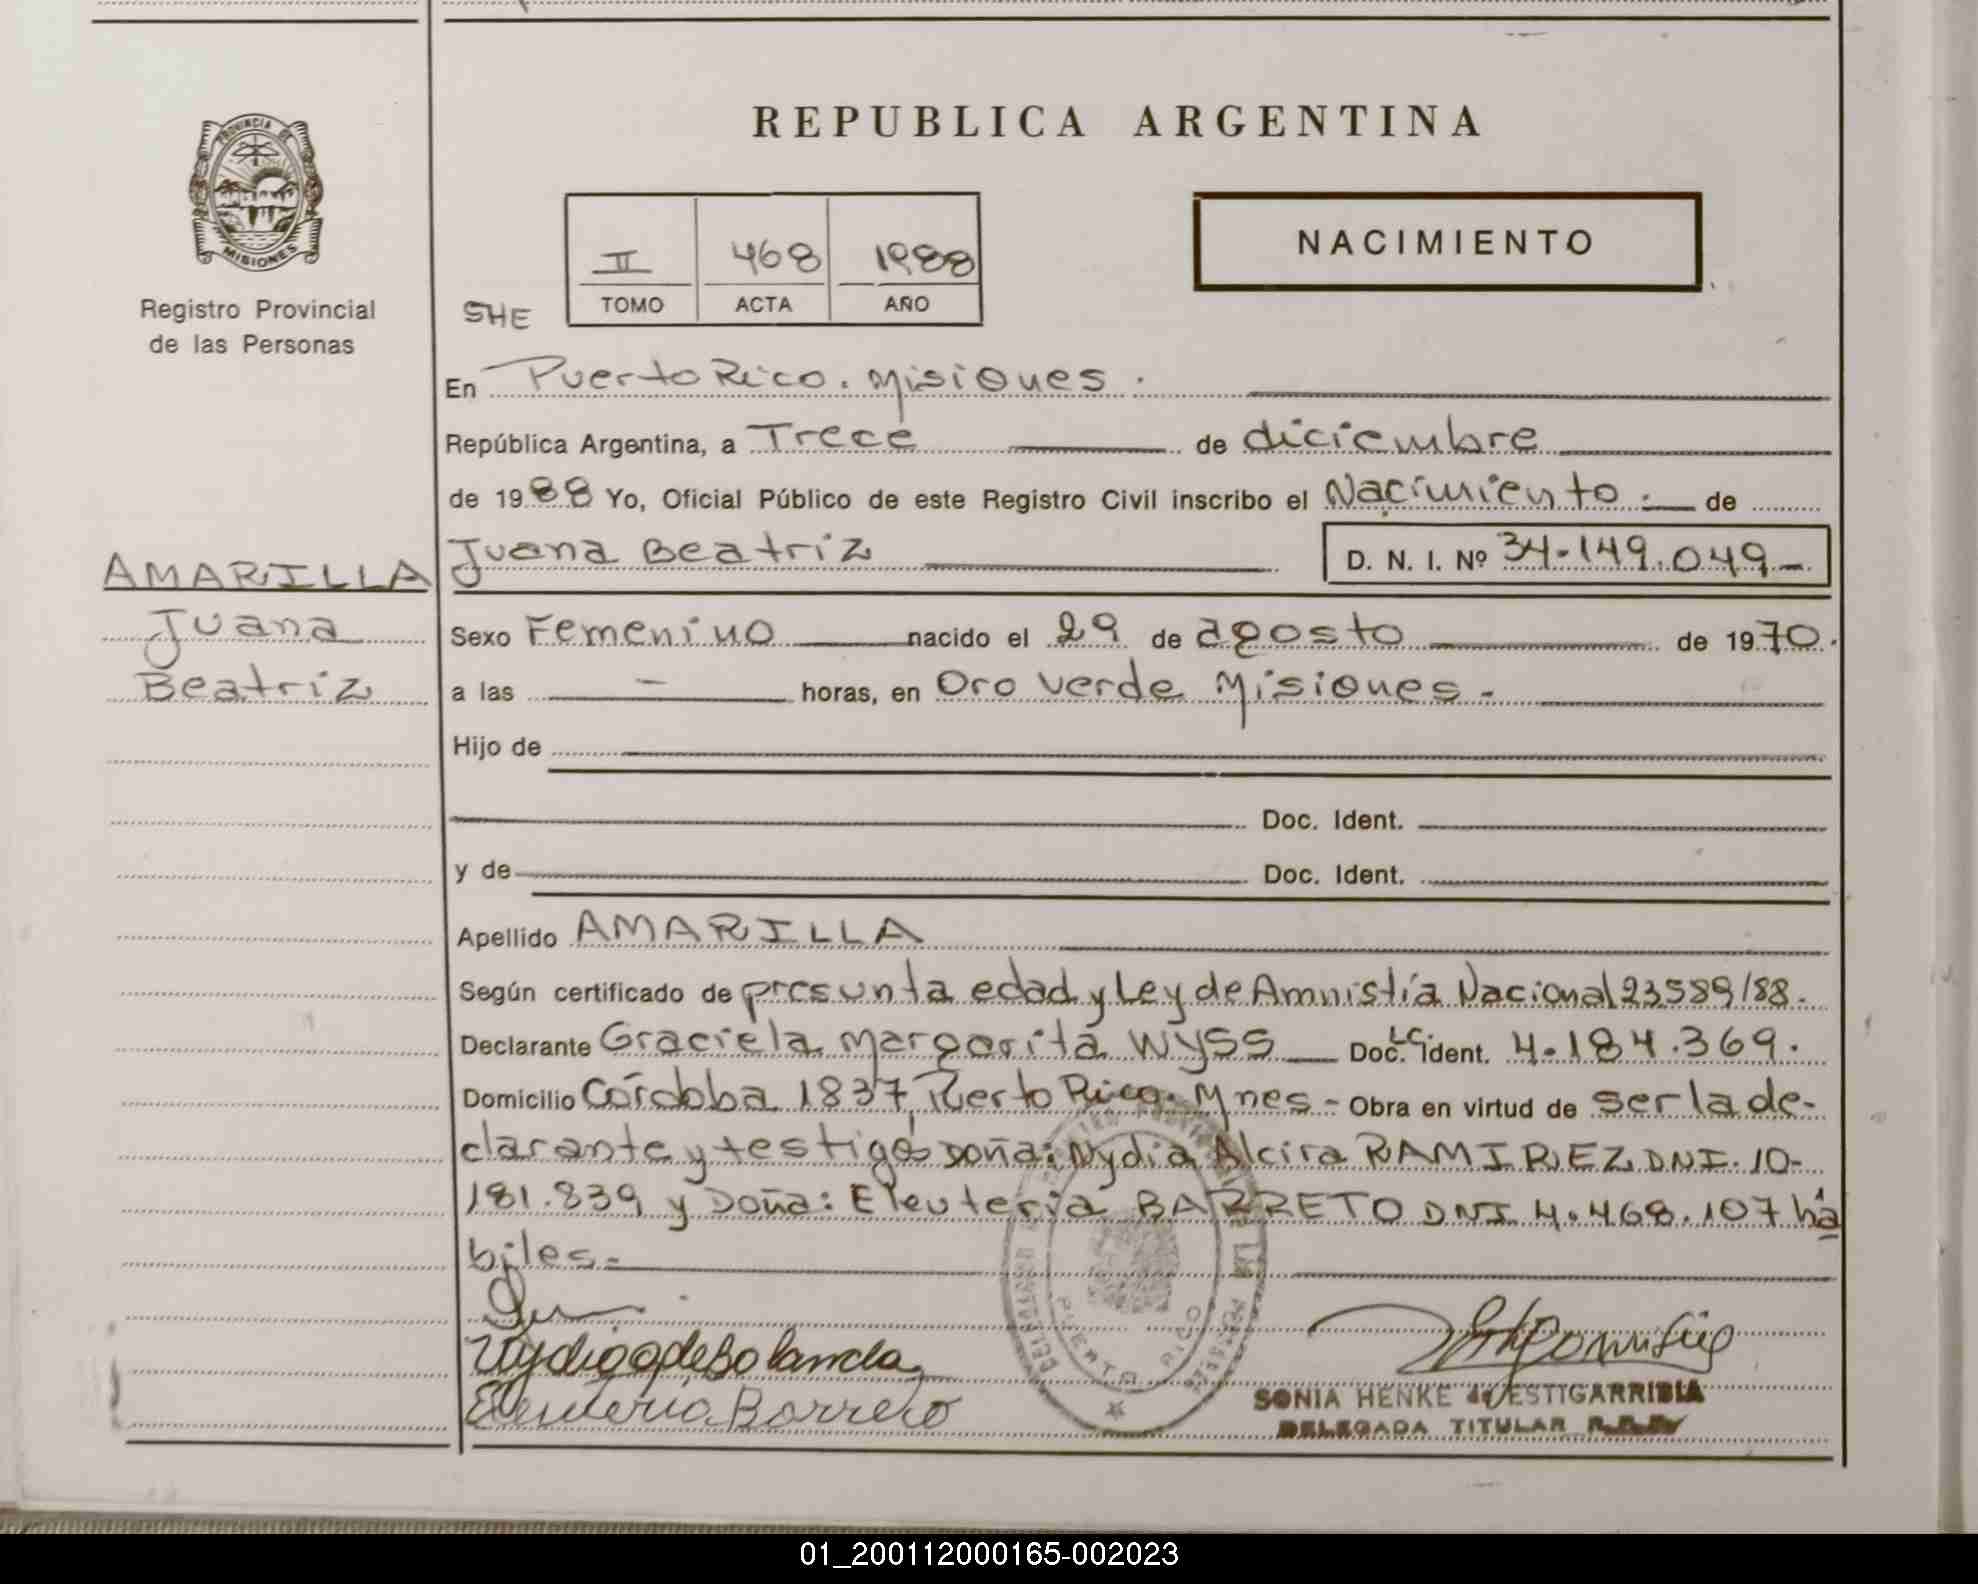 REPUBLICA ARGENTINA
PROVINCIA DE
MISIONES
Registro Provincial
de las Personas
II 468 1988
TOMO ACTA AÑO
NACIMIENTO
SHE
En Puerto Rico. Misiones.
República Argentina, a Trece de diciembre
de 1988 Yo, Oficial Público de este Registro Civil inscribo el Nacimiento.- de
Juana Beatriz D. N. I. Nº 34.149.049-
AMARILLA
Juana
Beatriz
Sexo Femenino nacido el 29 de agosto de 1970.
a las - horas, en Oro Verde Misiones.-
Hijo de
Doc. Ident.
y de Doc. Ident.
Apellido AMARILLA
Según certificado de presunta edad y Ley de Amnistía Nacional 23589/88.
Declarante Graciela Margarita WYSS Doc. Ident. LC 4.184.369.
Domicilio Córdoba 1837, Puerto Rico. Mnes- Obra en virtud de ser la de-
clarante y testigos Doña: Nydia Alcira RAMIREZ DNI. 10-
181.839 y Doña: Eleuteria BARRETO DNI 4.468.107 há
biles.-
Nydia de Bolanda
Eleuteria Barreto
PUERTO RICO
SONIA HENKE de VESTIGARRIBIA
DELEGADA TITULAR
01_200112000165-002023